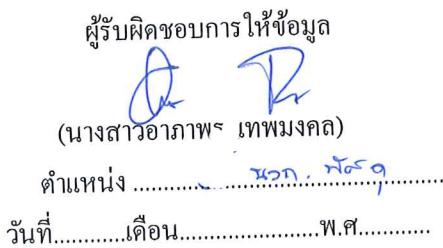 ผู้รับผิดชอบการให้ข้อมูล
(นางสาวอาภาพร เทพมงคล)
ตำแหน่ง ........... นวก. พัสดุ ...........
วันที่............เดือน........................พ.ศ.............